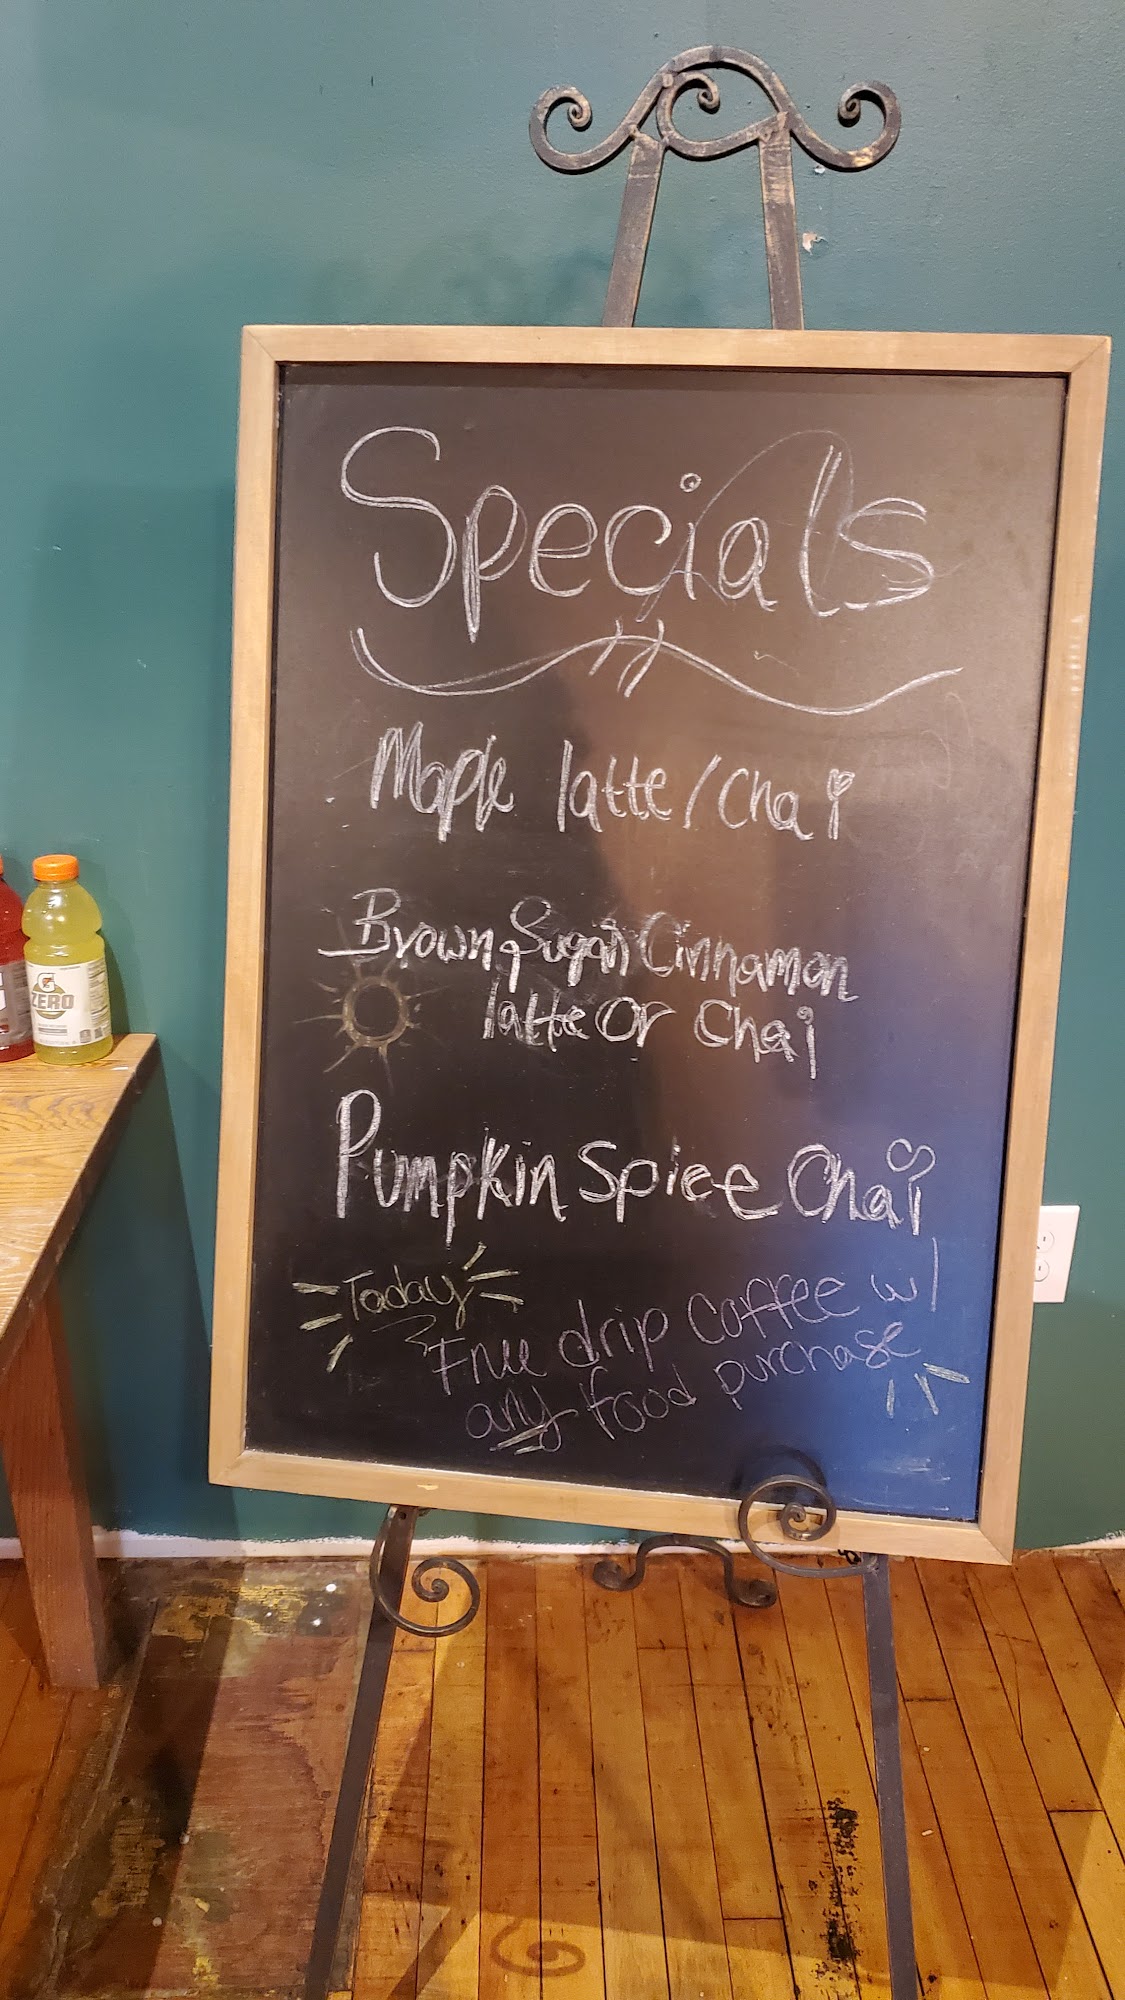 Specials
Maple latte/Chai
Brown Sugar Cinnamon
latte or Chai
Pumpkin Spice Chai
Today
Free drip Coffee w/
any food purchase
G
ZERO